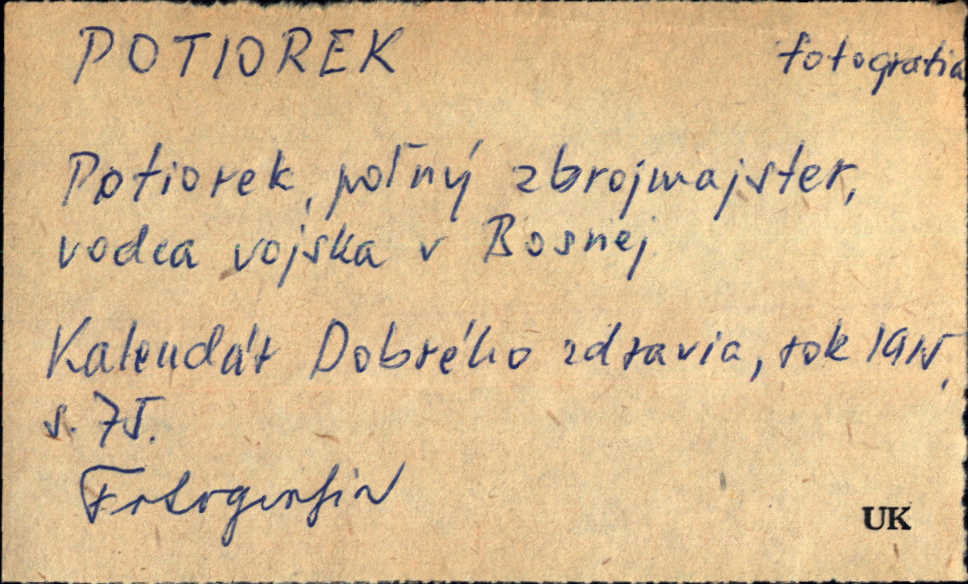 POTIOREK fotografia
Potiorek, poľný zbrojmajster,
vodca vojska v Bosnej
Kalendár Dobrého zdravia, rok 1915,
s. 75.
Fotografia
UK